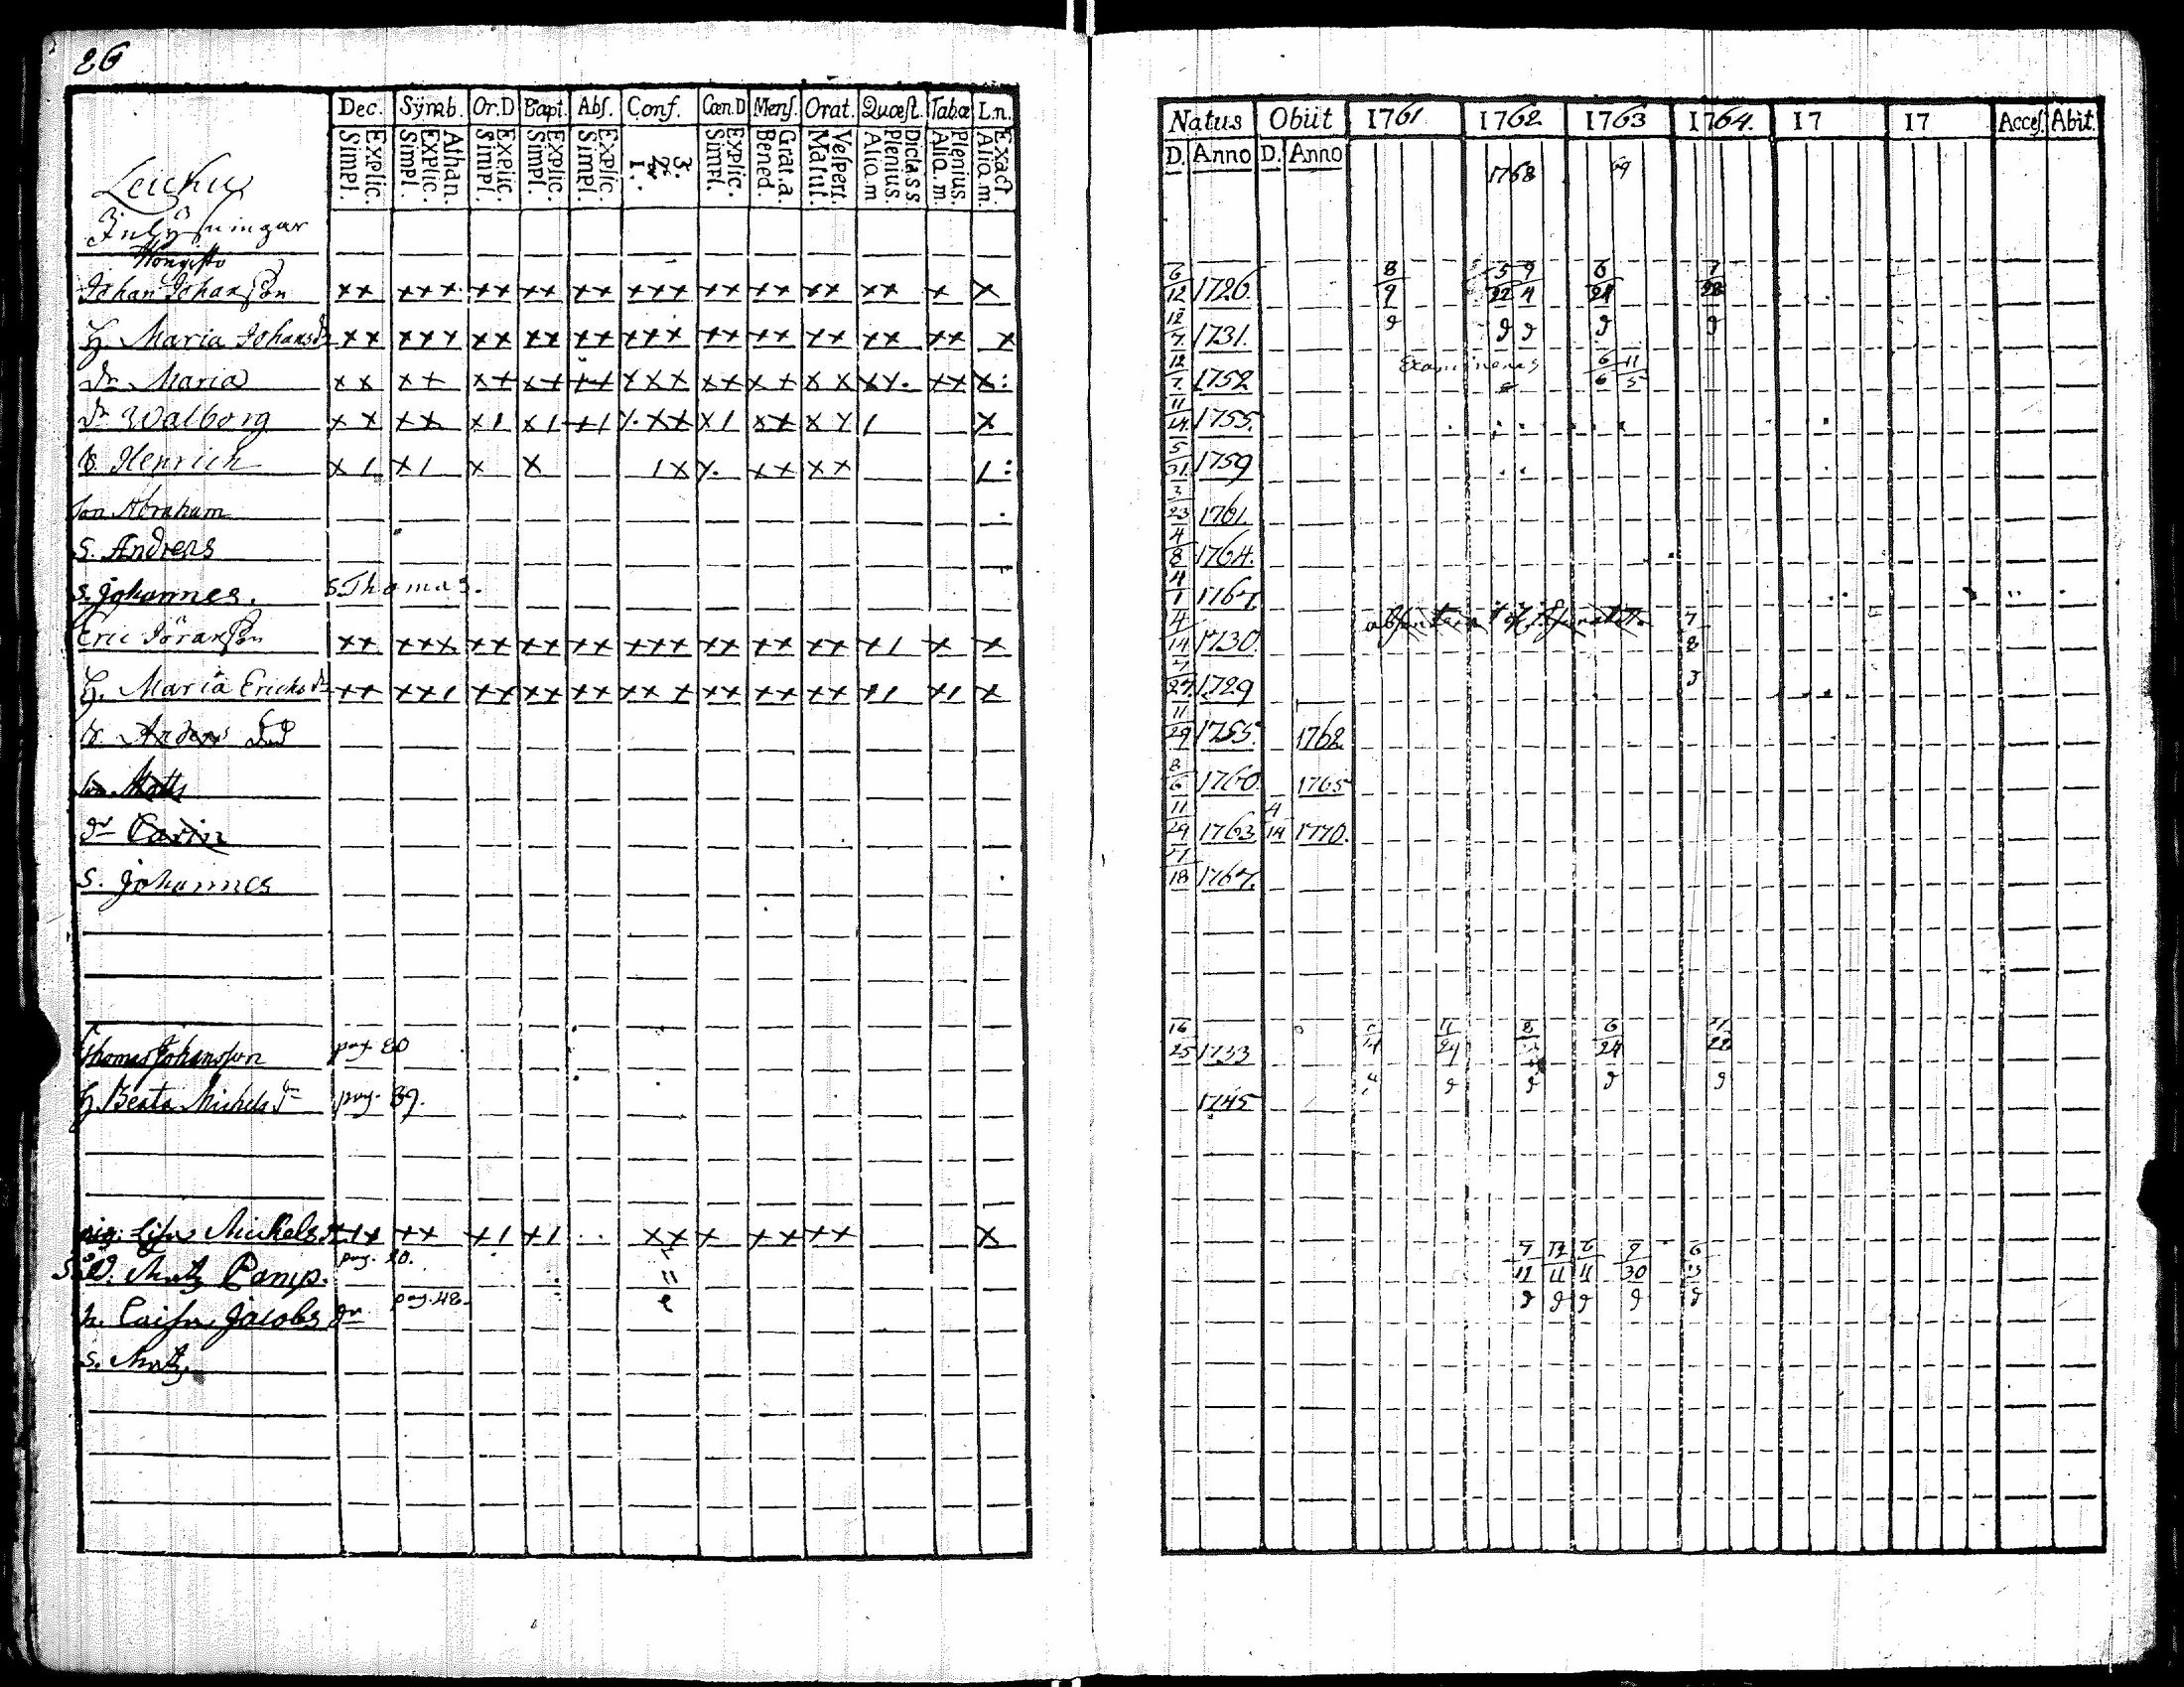 26
Dec. Symb. Or.D Bapt. Abs. Conf. Cœn.D Mens. Orat. Quæst. Tabæ L.n.
Explic. Simpl. Athan. Explic. Simpl. Explic. Simpl. Explic. Simpl. Explic. Simpl. 3. 2. 1. Explic. Simpl. Grat.a. Bened. Vespert. Matut. Dictass Plenius. Aliq.m Plenius. Aliq.m. Exact. Aliq.m.
Natus Obiit 1761 1762 1763 1764. 17 17 Acces. Abit.
D. Anno D. Anno
1768 69
Johan Johansson xx xxx xx xx xx xxx xx xx xx xx x x 6/12 1726. 8/9 5/22 9/4 6/24 7/28
H. Maria Johansdr xx xxx xx xx xx xxx xx xx xx xx xx x 12/7. 1731.
dr Maria xx xx xx xx xx xxx xx xx xx xx. xx x: 12/7. 1752 6/6 11/5
dr Walborg xx xx x1 x1 x1 xxx x1 xx xx 1 x 11/14. 1755.
S. Henrich x1 x1 x x 1x x. xx xx 1: 5/31. 1759
Son Abraham 3/23 1761.
S. Andreas 4/8 1764.
S. Johannes. S. Thomas. 4/1 1767
Eric Göransson xx xxx xx xx xx xxx xx xx xx x1 x x 4/14 1730. 7/8
H. Maria Erichsdr xx xx1 xx xx xx xxx xx xx xx x1 x1 x 7/27. 1729
S. Anders 11/29 1755. 1762
Son Matts 8/6 1760. 1765
dr Carin 11/29 1763 4/14 1770.
S. Johannes 7/18 1767.
Thomas Johansson pag. 80 16/25 1733 11/24 6/24 11/28
H. Beata Michelsdr pag. 89. 1745
Lisa Mickelsdr xx xx x1 x1 xx x xx xx x
Matz Camp. pag. 20. 7/11 12/11 6/11 9/30
h. Caisa Jacobsdr pag. 48.
S. Matz.